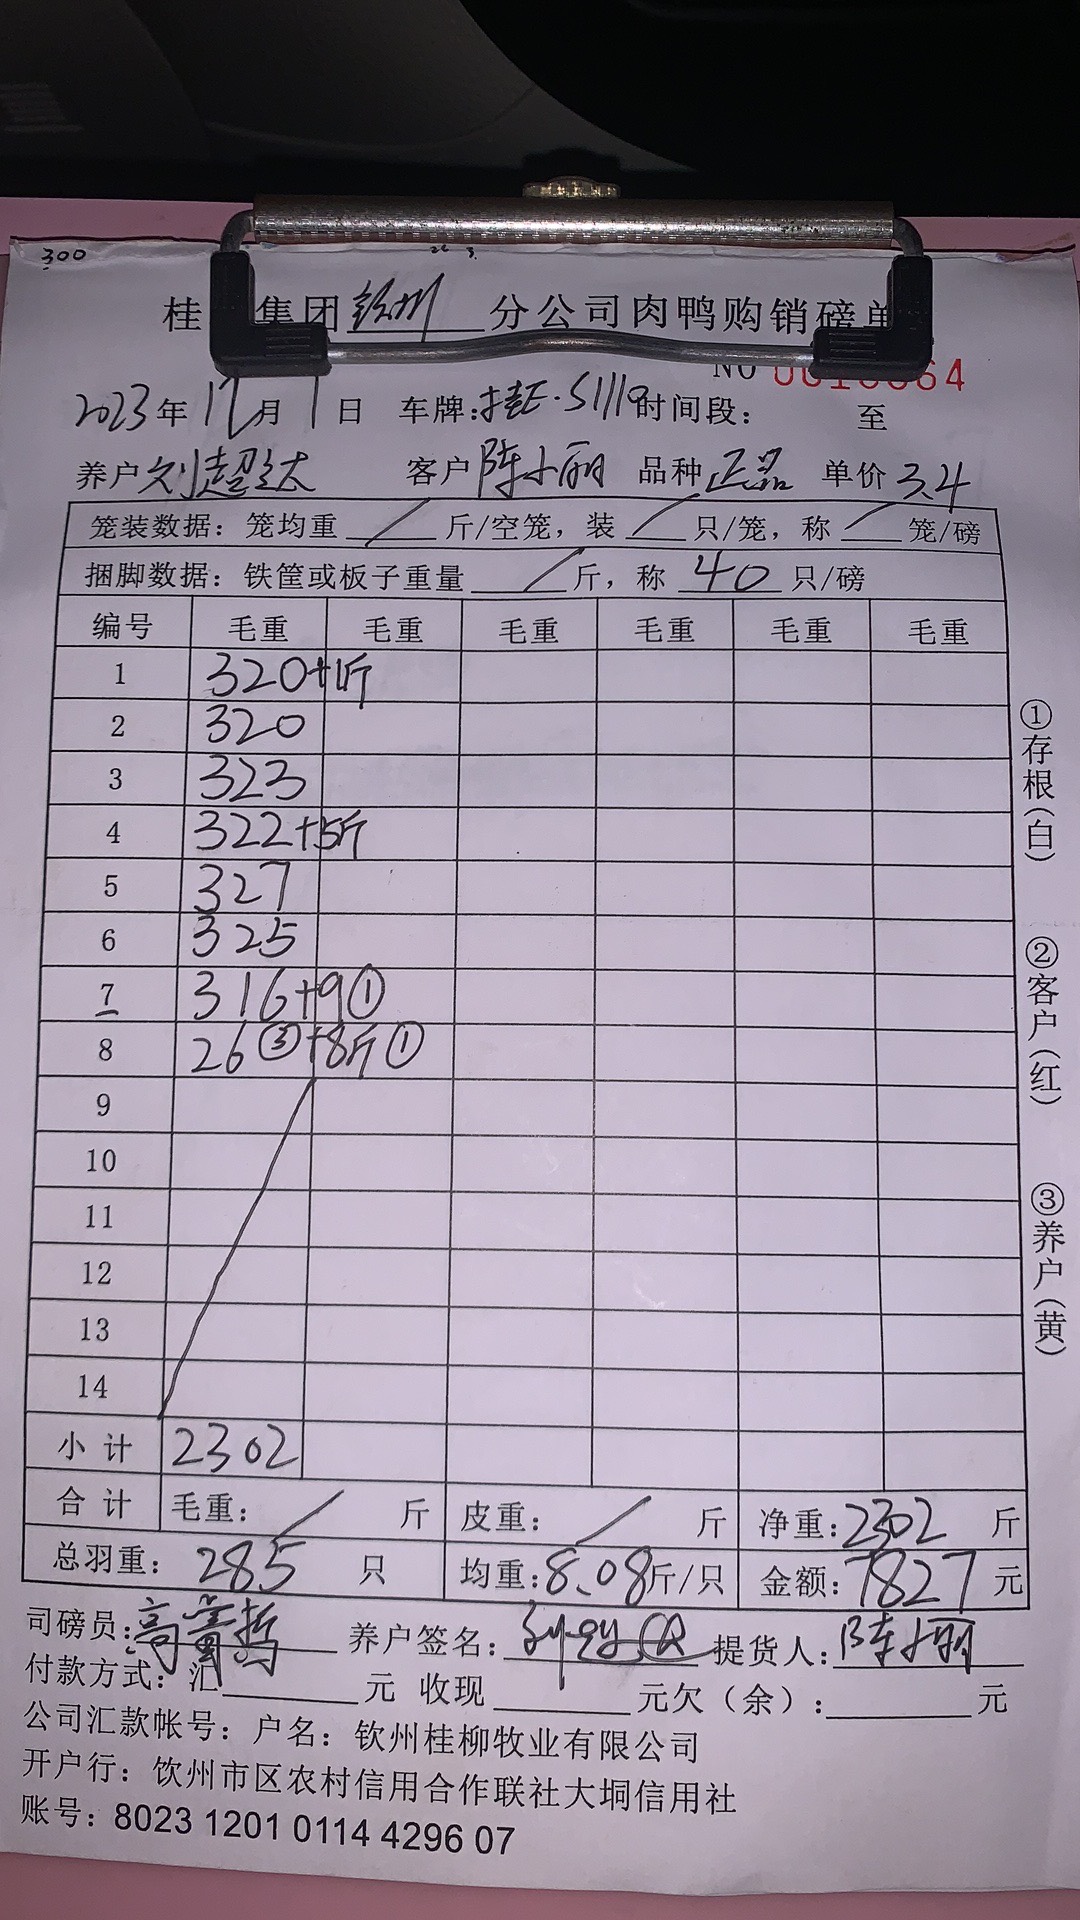 300
桂 集团 钦州 分公司肉鸭购销磅单
NO 64
2023年12月1日 车牌:桂E·S1119 时间段: 至
养户 刘超达 客户 陈小丽 品种 正品 单价 3.4
笼装数据：笼均重 / 斤/空笼，装 / 只/笼，称 / 笼/磅
捆脚数据：铁筐或板子重量 / 斤，称 40 只/磅
编号 毛重 毛重 毛重 毛重 毛重 毛重
1 320+1斤
2 320
3 323
4 322+5斤
5 327
6 325
7 316+9①
8 26③+8斤①
9
10
11
12
13
14
小计 2302
合计 毛重： / 斤 皮重： / 斤 净重：2302 斤
总羽重： 285 只 均重：8.08斤/只 金额：7827 元
司磅员： 养户签名： 提货人：陈小丽
付款方式：汇 元 收现 元欠（余）： 元
公司汇款帐号：户名：钦州桂柳牧业有限公司
开户行：钦州市区农村信用合作联社大垌信用社
账号：8023 1201 0114 4296 07
①存根（白）
②客户（红）
③养户（黄）